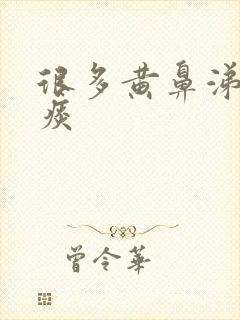 很多黄鼻涕
痰
曾令華